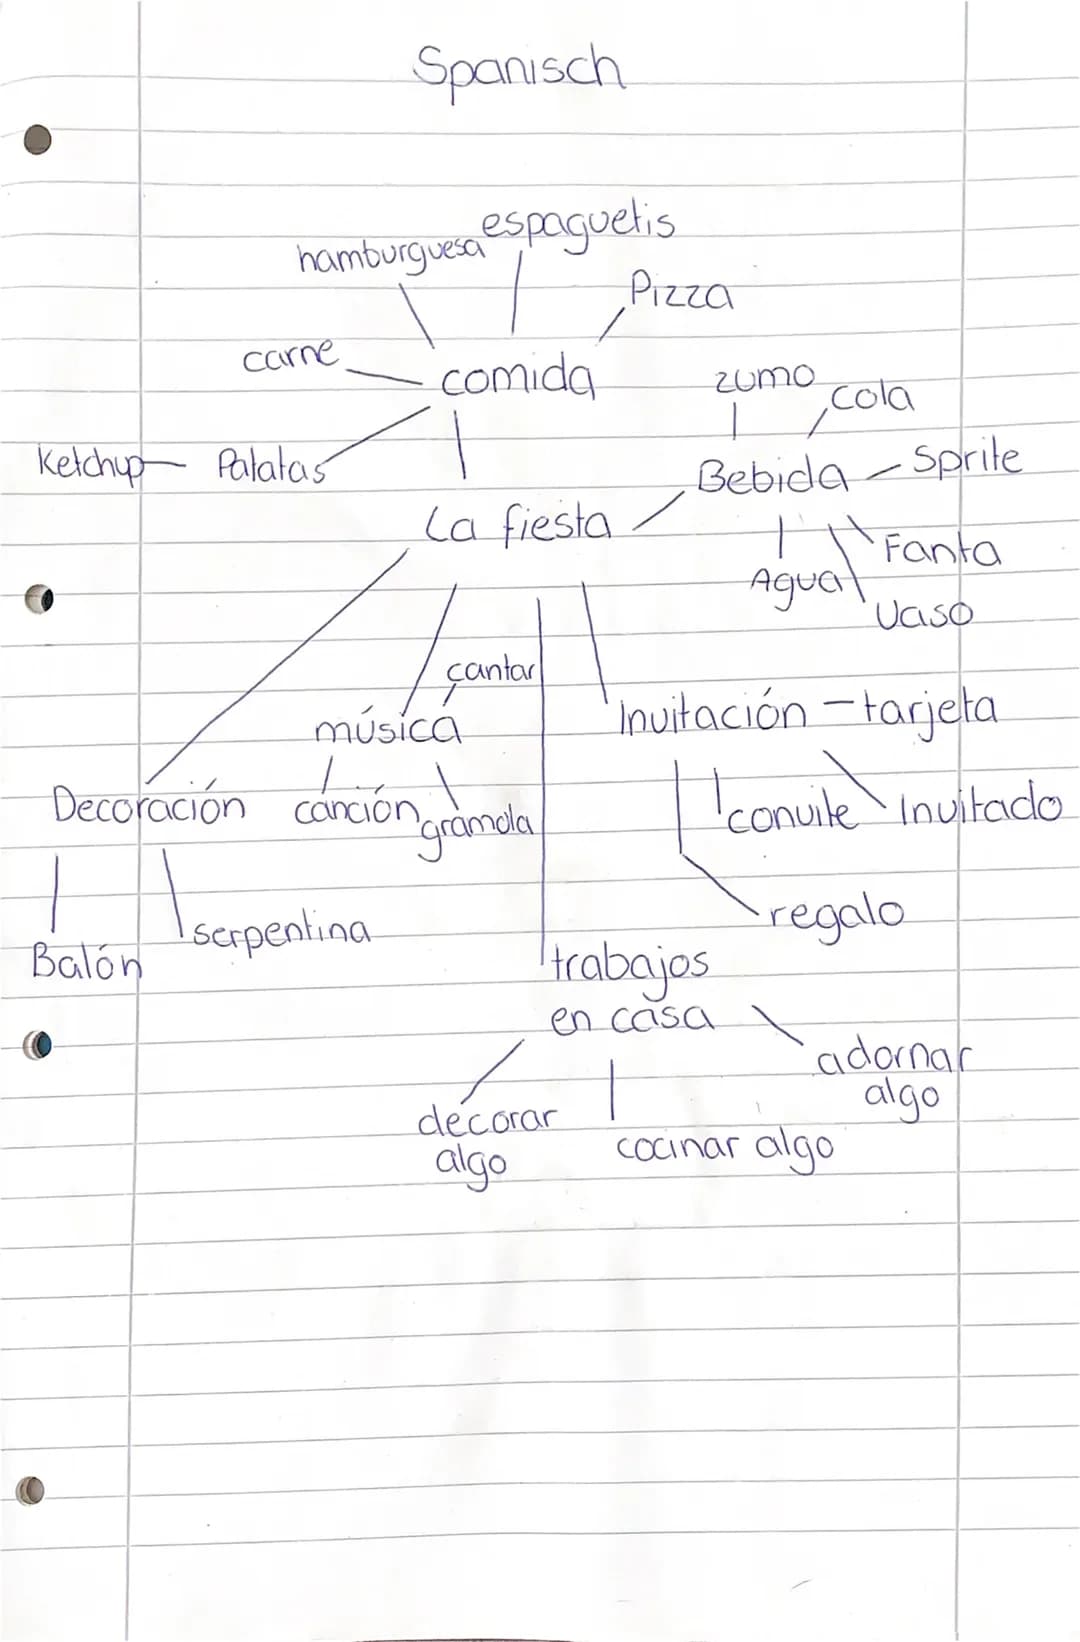 Spanisch
espaguetis
hamburguesa
Pizza
carne
comida
zumo
cola
Ketchup Patatas
Bebida Sprite
La fiesta
Fanta
Agua
Vaso
cantar
música
Invitación - tarjeta
Decoración canción gramola
convite Invitado
serpentina
regalo
Balón
trabajos
en casa
adornar
algo
decorar
algo
cocinar algo